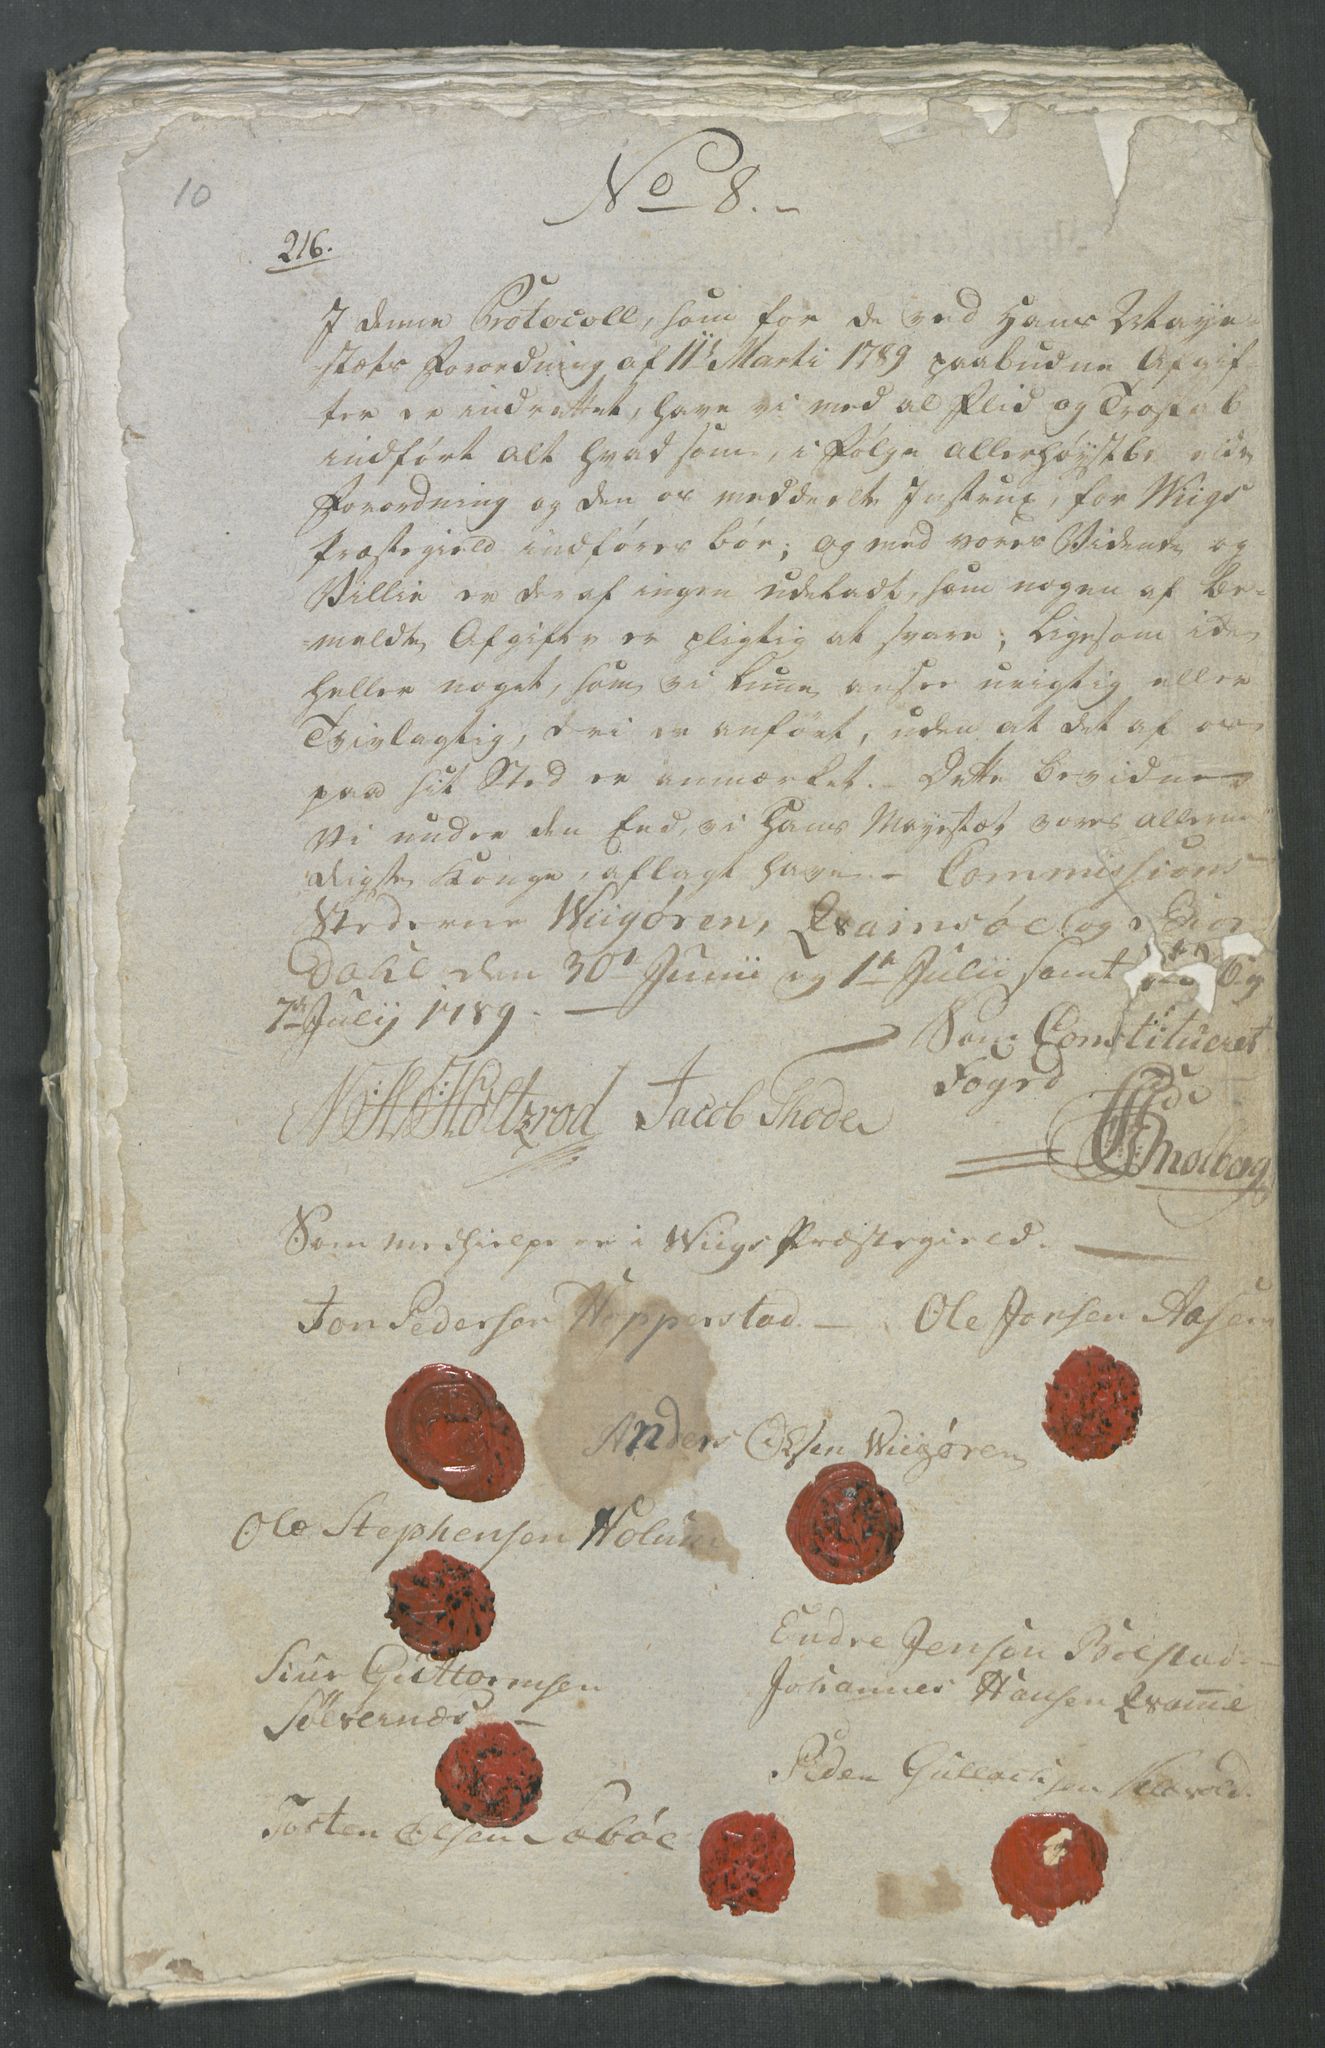 10
No 8.
216.
I denne Protocoll, som for de ved Hans Maye-
stæts Forordning af 11t Marti 1789 paabudne Afgif-
ter er indrettet, have vi med al Flid og Troskab
indført alt hvad som, i Følge allerhøystbemeldte
Forordning og den os meddeelte Instrux, for Wiigs
Præstegield indføres bør; og med vores Vidende og
Villie er der af ingen udeladt, som nogen af be-
meldte Afgifter er pligtig at svare; ligesom iden
heller noget, som vi kunne ansee urigtig eller
Tvivlagtig, deri er anført, uden at det af os
paa sit Sted er anmærket. Dette bevidner
Vi under den Eed, vi Hans Mayestæt vores allernaa
digste Konge, aflagt have. - Commissions
Stederne Wiigøren, Qvamsøe og
Dahl den 30t Junii og 1te Julii samt 6 og
7de Julij 1789. -
Som Constitueret
Foged
N: H: Holtzrod Jacob Thode
Smolberg
Som medhielpere i Wiigs Præstegield.
Jon Pederson Hopperstad. - Ole Jonsen Aasen
Anders Olsen Wiigøren
Ole Stephensen Holum
Endre Jenson Boestad
Siur Guttormsen
Johannes Hansen Qvamme
Sølvernæs -
Peder Gullachsen
Tosten Olsen Læbøe